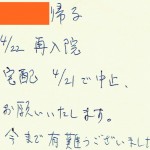 帰る
4/22 再入院
宅配 4/21で中止、
お願いいたします。
今まで有難うございました